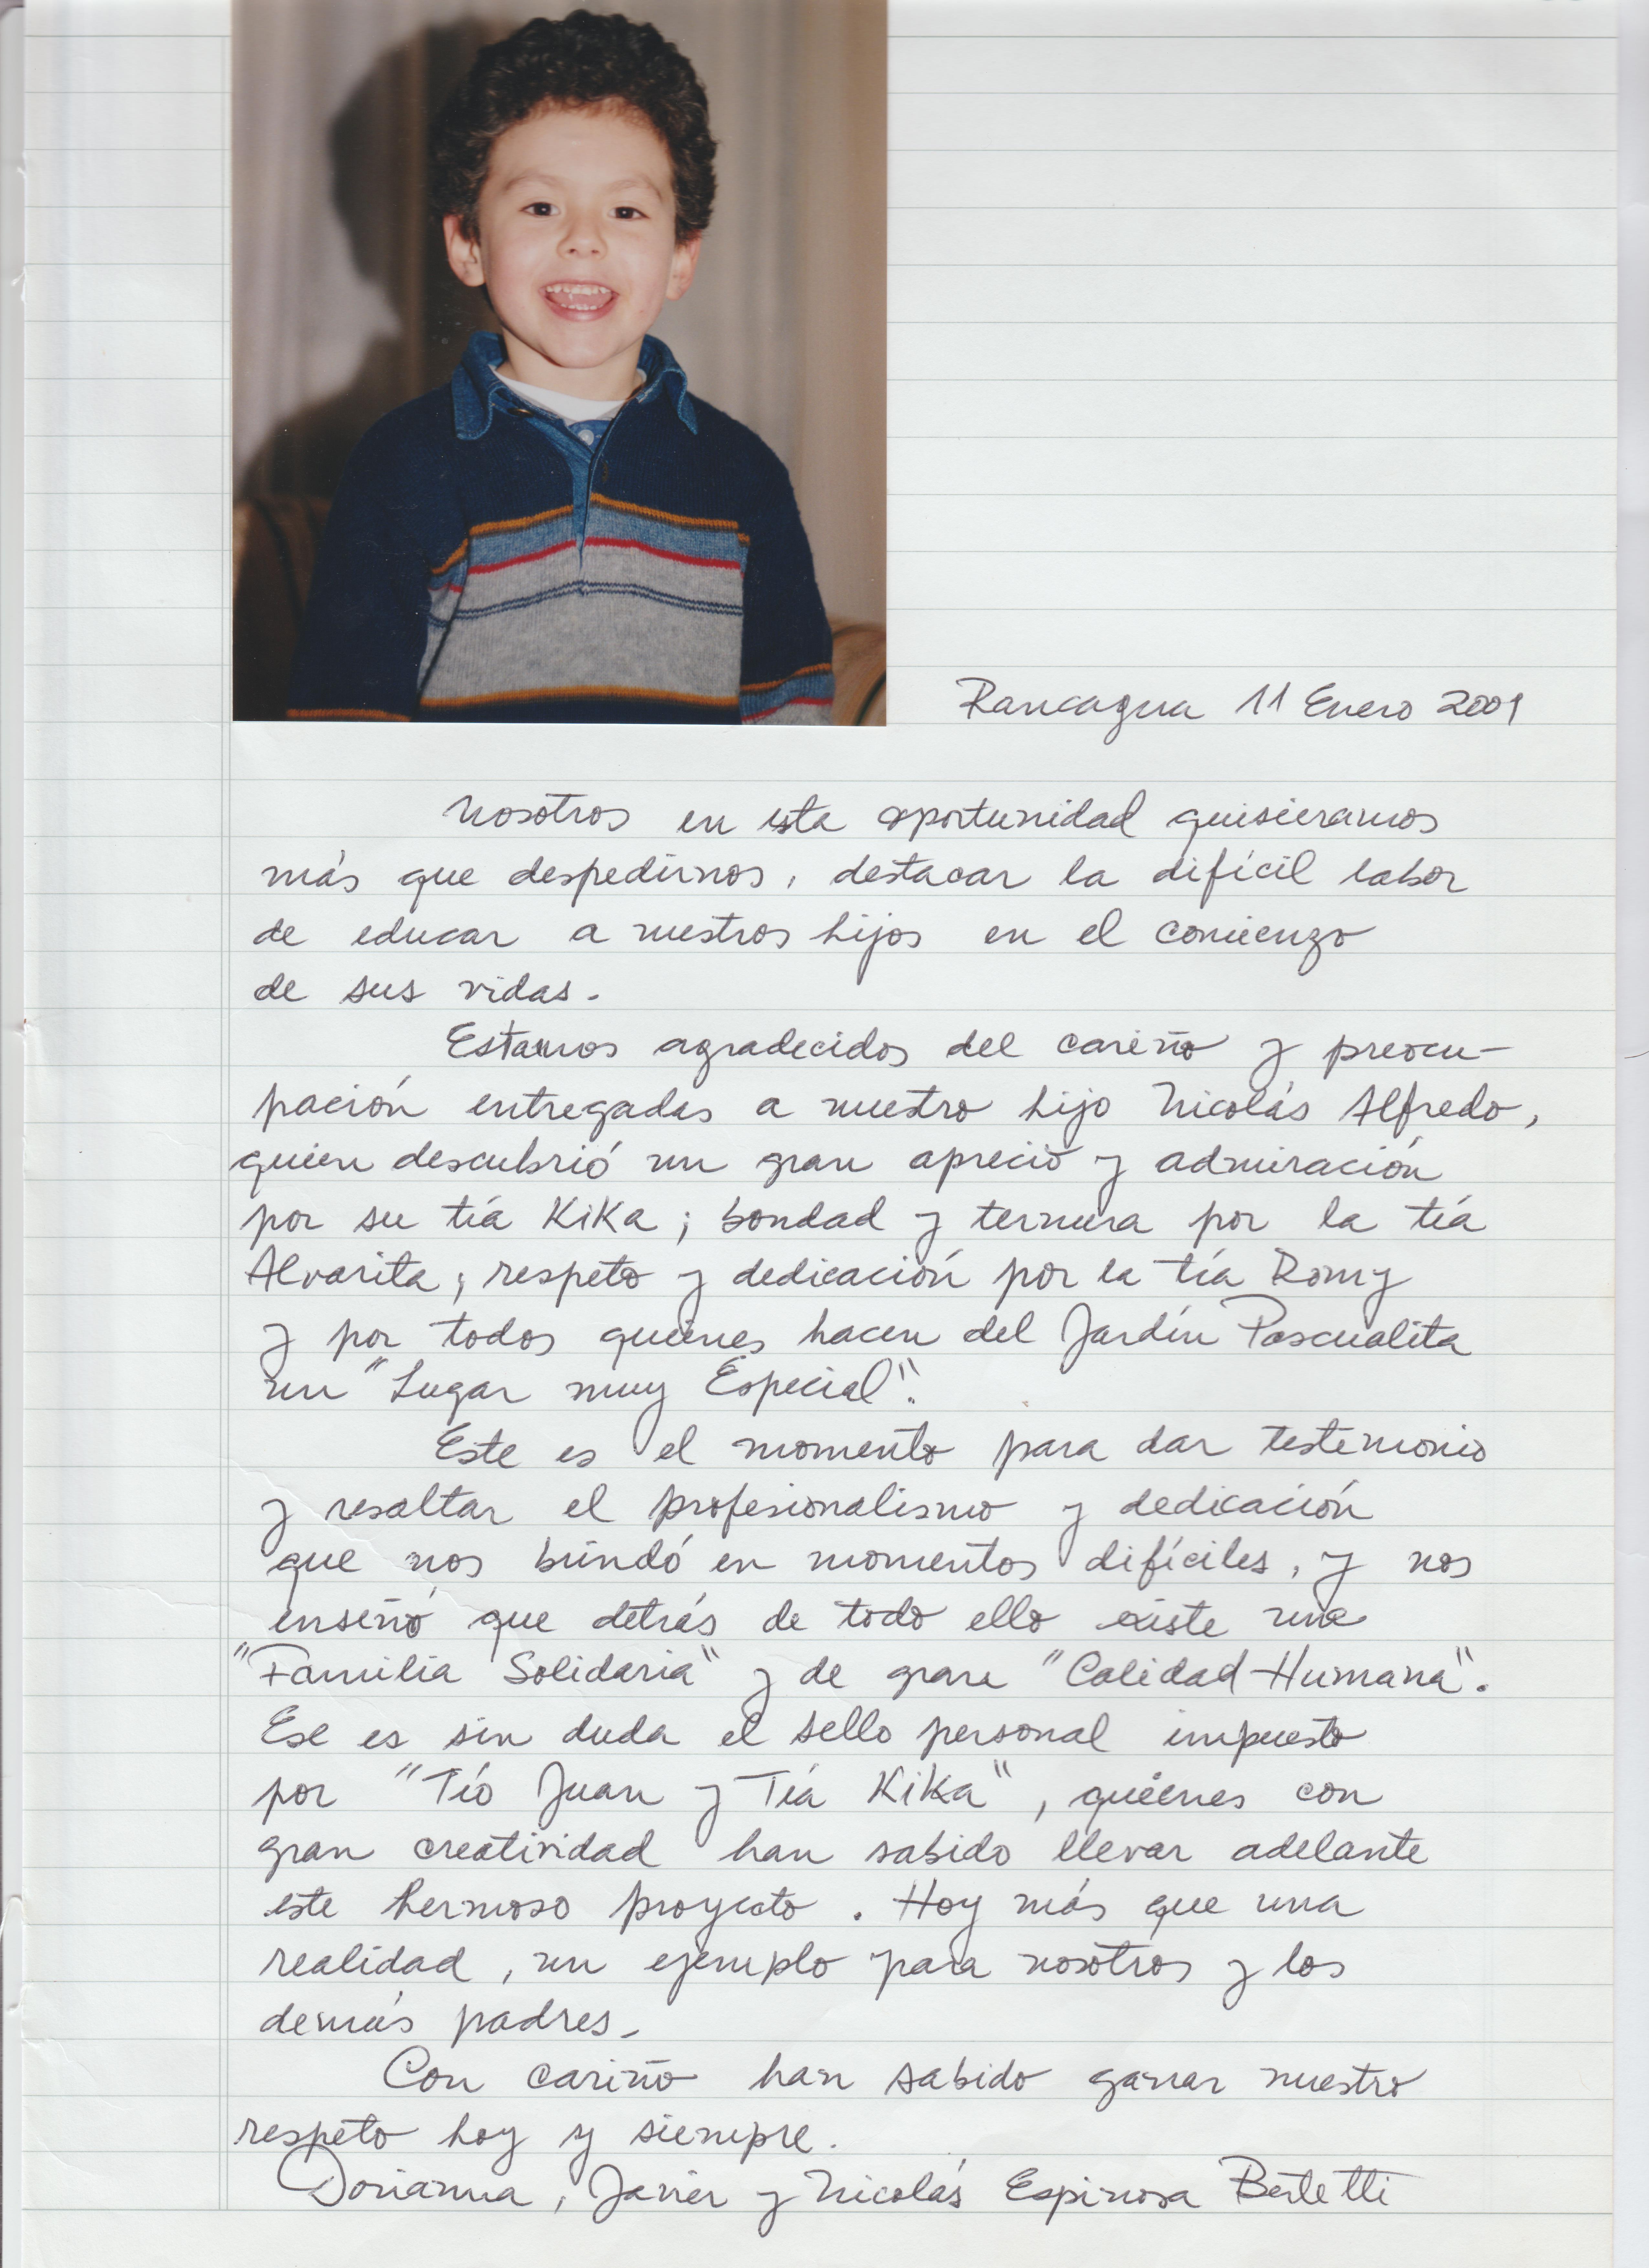 Rancagua 11 Enero 2001
Nosotros en esta oportunidad quisieramos
más que despedirnos, destacar la difícil labor
de educar a nuestros hijos en el comienzo
de sus vidas.
Estamos agradecidos del cariño y preocu-
pación entregadas a nuestro hijo Nicolás Alfredo,
quien descubrió un gran aprecio y admiración
por su tía Kika; bondad y ternura por la tía
Alvarita; respeto y dedicación por la tía Romy
y por todos quienes hacen del Jardín Pascualita
un "Lugar muy Especial".
Este es el momento para dar testimonio
y resaltar el profesionalismo y dedicación
que nos brindó en momentos difíciles, y nos
enseñó que detrás de todo ello existe una
"Familia Solidaria" y de gran "Calidad Humana".
Ese es sin duda el sello personal impuesto
por "Tío Juan y Tía Kika", quienes con
gran creatividad han sabido llevar adelante
este hermoso proyecto. Hoy más que una
realidad, un ejemplo para nosotros y los
demás padres.
Con cariño han sabido ganar nuestro
respeto hoy y siempre.
Dorianna, Javier y Nicolás Espinosa Bertetti